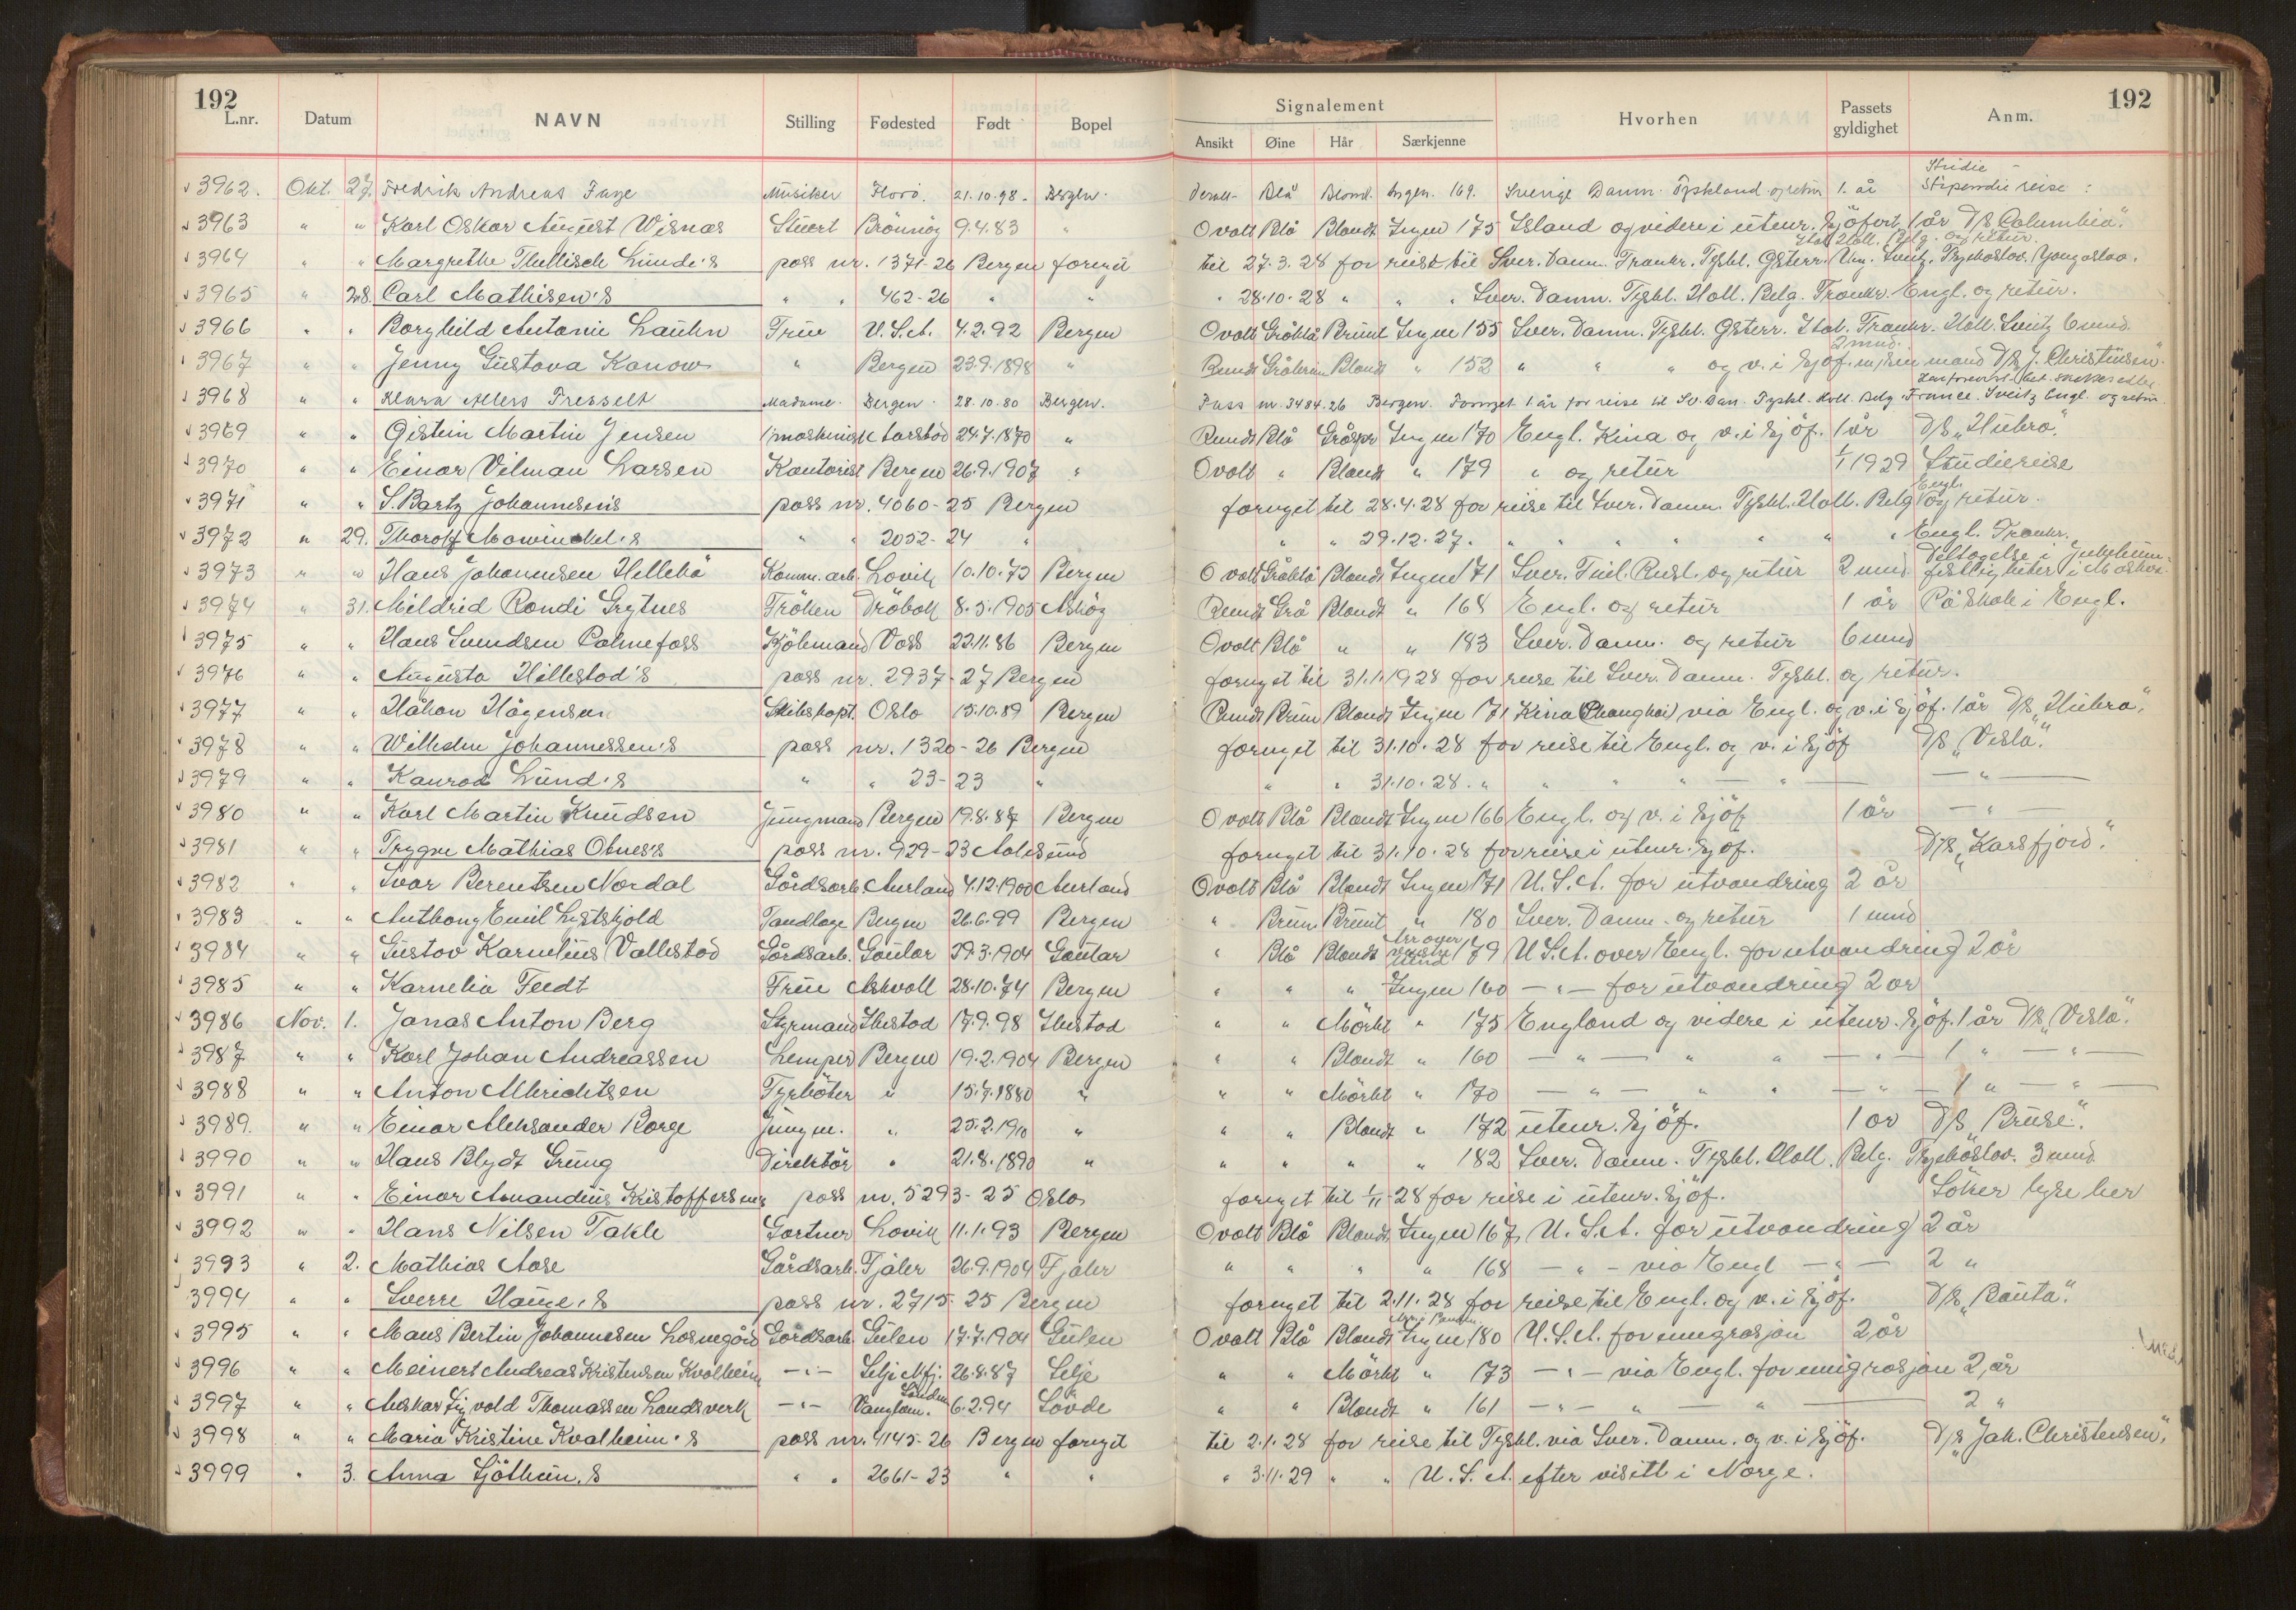 192
L.nr. Datum NAVN Stilling Fødested Født Bopel
Signalement
Ansikt Øine Hår Særkjenne Hvorhen Passets gyldighet Anm.
192
3962. Okt. 27. Fredrik Andreas Musiker Florö. 21.10.98. Bergen. Blå Blond. Ingen. 169. Sverige Danm. Tyskland og retur 1. år Studie - Stipendie reise
3963 " " Karl Oskar August Wisnæs Stuert Brönnöy 9.4.83 " Ovalt Blå Blondt Ingen 175 Island og videre i utenr. Sjöfart 1 år D/S "Columbia".
3964 " " Margrethe Lunde's pass nr. 1371-26 Bergen fornyet til 27.3.28 for reise til Sver. Danm. Frankr. Tyskl. Østerr. Ung. Sveitz. Ital. Holl. Belg. og retur.
3965 " 28. Carl Mathisen's " " 462-26 " " " 28.10.28 " " " Sver. Danm. Tyskl. Holl. Belg. Frankr. Engl. og retur.
3966 " " Borghild Antonie Laukn Frue U.S.A. 4.2.92 Bergen Ovalt Gråblå Brunt Ingen 155 Sver. Danm. Tyskl. Østerr. Ital. Frankr. Holl. Sveitz 6 mnd.
3967 " " Jenny Gustava Konow " Bergen 23.9.1898 " Rundt Gråbrun Blondt " 152 " " " og v. i Sjöf. m/sin mand D/S J. Christensen". 2 mnd.
3968 " " Klara Allers Fresselt Madame. Bergen. 28.10.80 Bergen. Pass nr. 3484.26 Bergen. Fornyet 1 år for reise til Sv. Dan. Tyskl. Holl. Belg. France. Sveitz Engl. og retur
3969 " " Øistein Martin Jensen 1/maskinist 24.7.1870 " Rundt Blå Gråspr. Ingen 170 Engl. Kina og v. i Sjöf. 1 år D/S "Hubro".
3970 " " Einar Vilman Larsen Kontorist Bergen 26.9.1907 " Ovalt " Blondt " 179 " og retur 1/1 1929 Studiereise
3971 " " S. Bartz Johannesen's pass nr. 4060-25 Bergen fornyet til 28.4.28 for reise til Sver. Danm. Tyskl. Holl. Belg. Engl. og retur.
3972 " 29. Thorolf Mowinckel's " " 2052-24 " " " 29.12.27. " " " " " " Engl. Frankr.
3973 " " Hans Johannesen Hillebö Komm.arb. Lovik 10.10.73 Bergen Ovalt Gråblå Blondt Ingen 171 Sver. Finl. Rusl. og retur 2 mnd Deltagelse i Jubileumsfestligheter i Moskva.
3974 " 31. Mildrid Rondi Grytnes Fröken Dröbak 8.5.1905 Askøy Rundt Grå Blondt " 168 Engl. og retur 1 år På skole i Engl.
3975 " " Hans Svendsen Palmefoss Kjöbmand Voss 22.11.86 Bergen Ovalt Blå " " 183 Sver. Danm. og retur 6 mnd
3976 " " Augusta Hillestad's pass nr. 2937-27 Bergen fornyet til 31.1.1928 for reise til Sver. Danm. Tyskl. og retur.
3977 " " Håkon Hågensen Skibskapt. Oslo 15.10.89 Bergen Rundt Brun Blondt Ingen 171 Kina (Shanghai) via Engl. og v. i Sjöf. 1 år D/S "Hubro".
3978 " " Wilhelm Johannessen's pass nr. 1320-26 Bergen fornyet til 31.10.28 for reise til Engl. og v. i Sjöf D/S "Vesla".
3979 " " Konrad Lund's " " 23-23 " " " 31.10.28. " " " " — " — — " —
3980 " " Karl Martin Knudsen Jungmand Bergen 19.8.87 Bergen Ovalt Blå Blondt Ingen 166 Engl. og v. i Sjöf 1 år — " —
3981 " " Trygve Mathias Obnes's pass nr. 929-23 Aalesund fornyet til 31.10.28 for reise i utenr. Sjöf. D/S "Korsfjord".
3982 " " Ivar Berentsen Nordal Gårdsarb. Aurland 4.12.1900 Aurland Ovalt Blå Blondt Ingen 171 U.S.A. for utvandring 2 år
3983 " " Anthony Emil Lystskjold Tandlæge Bergen 26.6.99 Bergen " Brun Brunt " 180 Sver. Danm. og retur 1 mnd
3984 " " Gustav Karnelius Vallestad Gårdsarb. Gaular 29.3.1904 Gaular " Blå Blondt 179 U.S.A. over Engl. for utvandring 2 år
3985 " " Karnelia Feedt Frue Askvoll 28.10.74 Bergen " " " Ingen 160 — " — for utvandring 2 år
3986 Nov. 1. Jonas Anton Berg Styrmand Ibestad 17.9.98 Ibestad " " Mörkt " 175 England og videre i utenr. Sjöf. 1 år D/S "Vesla".
3987 " " Karl Johan Andreassen Lemper Bergen 19.2.1904 Bergen " " Blondt " 160 — " — " " — " — 1 " — " —
3988 " " Anton Albrichtsen Fyrböter " 15.7.1880 " " " Mörkt " 170 — " — " " — " — 1 " — " —
3989. " " Einar Aleksander Borge Jungm. " 25.2.1910 " " " Blondt " 172 utenr. Sjöf. 1 år D/S "Bruse".
3990 " " Hans Blydt Grung Direktör " 21.8.1890 " " " " " 182 Sver. Danm. Tyskl. Holl. Belg. 3 mnd.
3991 " " Einar Amandus Kristoffersen's pass nr. 5293-25 Oslo fornyet til 1/11-28 for reise i utenr. Sjöf. Söker hyre her
3992 " " Hans Nilsen Takle Gartner Lovik 11.1.93 Bergen Ovalt Blå Blondt Ingen 167 U.S.A. for utvandring 2 år
3993 " 2. Mathias Aase Gårdsarb. Fjaler 26.9.1904 Fjaler " " " " 168 — " — via Engl — " — 2 "
3994 " " Sverre Hauge's pass nr. 2715-25 Bergen fornyet til 2.11.28 for reise til Engl. og v. i Sjöf. D/S "Rauta".
3995 " " Mons Bertin Johannesen Losnegård Gårdsarb. Gulen 17.7.1904 Gulen Ovalt Blå Blondt Ingen 180 U.S.A. for emigrasjon 2 år
3996 " " Meinert Andreas Kristensen Kvalheim — " — Selje Nfj. 26.8.87 Selje " " Mörkt " 173 — " — via Engl. for emigrasjon 2 år
3997 " " Sigvald Thomassen Landsverk — " — 6.2.94 Sövde " " Blondt " 161 — " — " — " — 2 "
3998 " " Maria Kristine Kvalheim's pass nr. 4145-26 Bergen fornyet til 2.1.28 for reise til Tyskl. via Sver. Danm. og v. i Sjöf. D/S "Jah. Christensen".
3999 " 3. Anna Sjöthun's " " 2661-23 " " " 3.11.29 " " U.S.A. efter visitt i Norge.